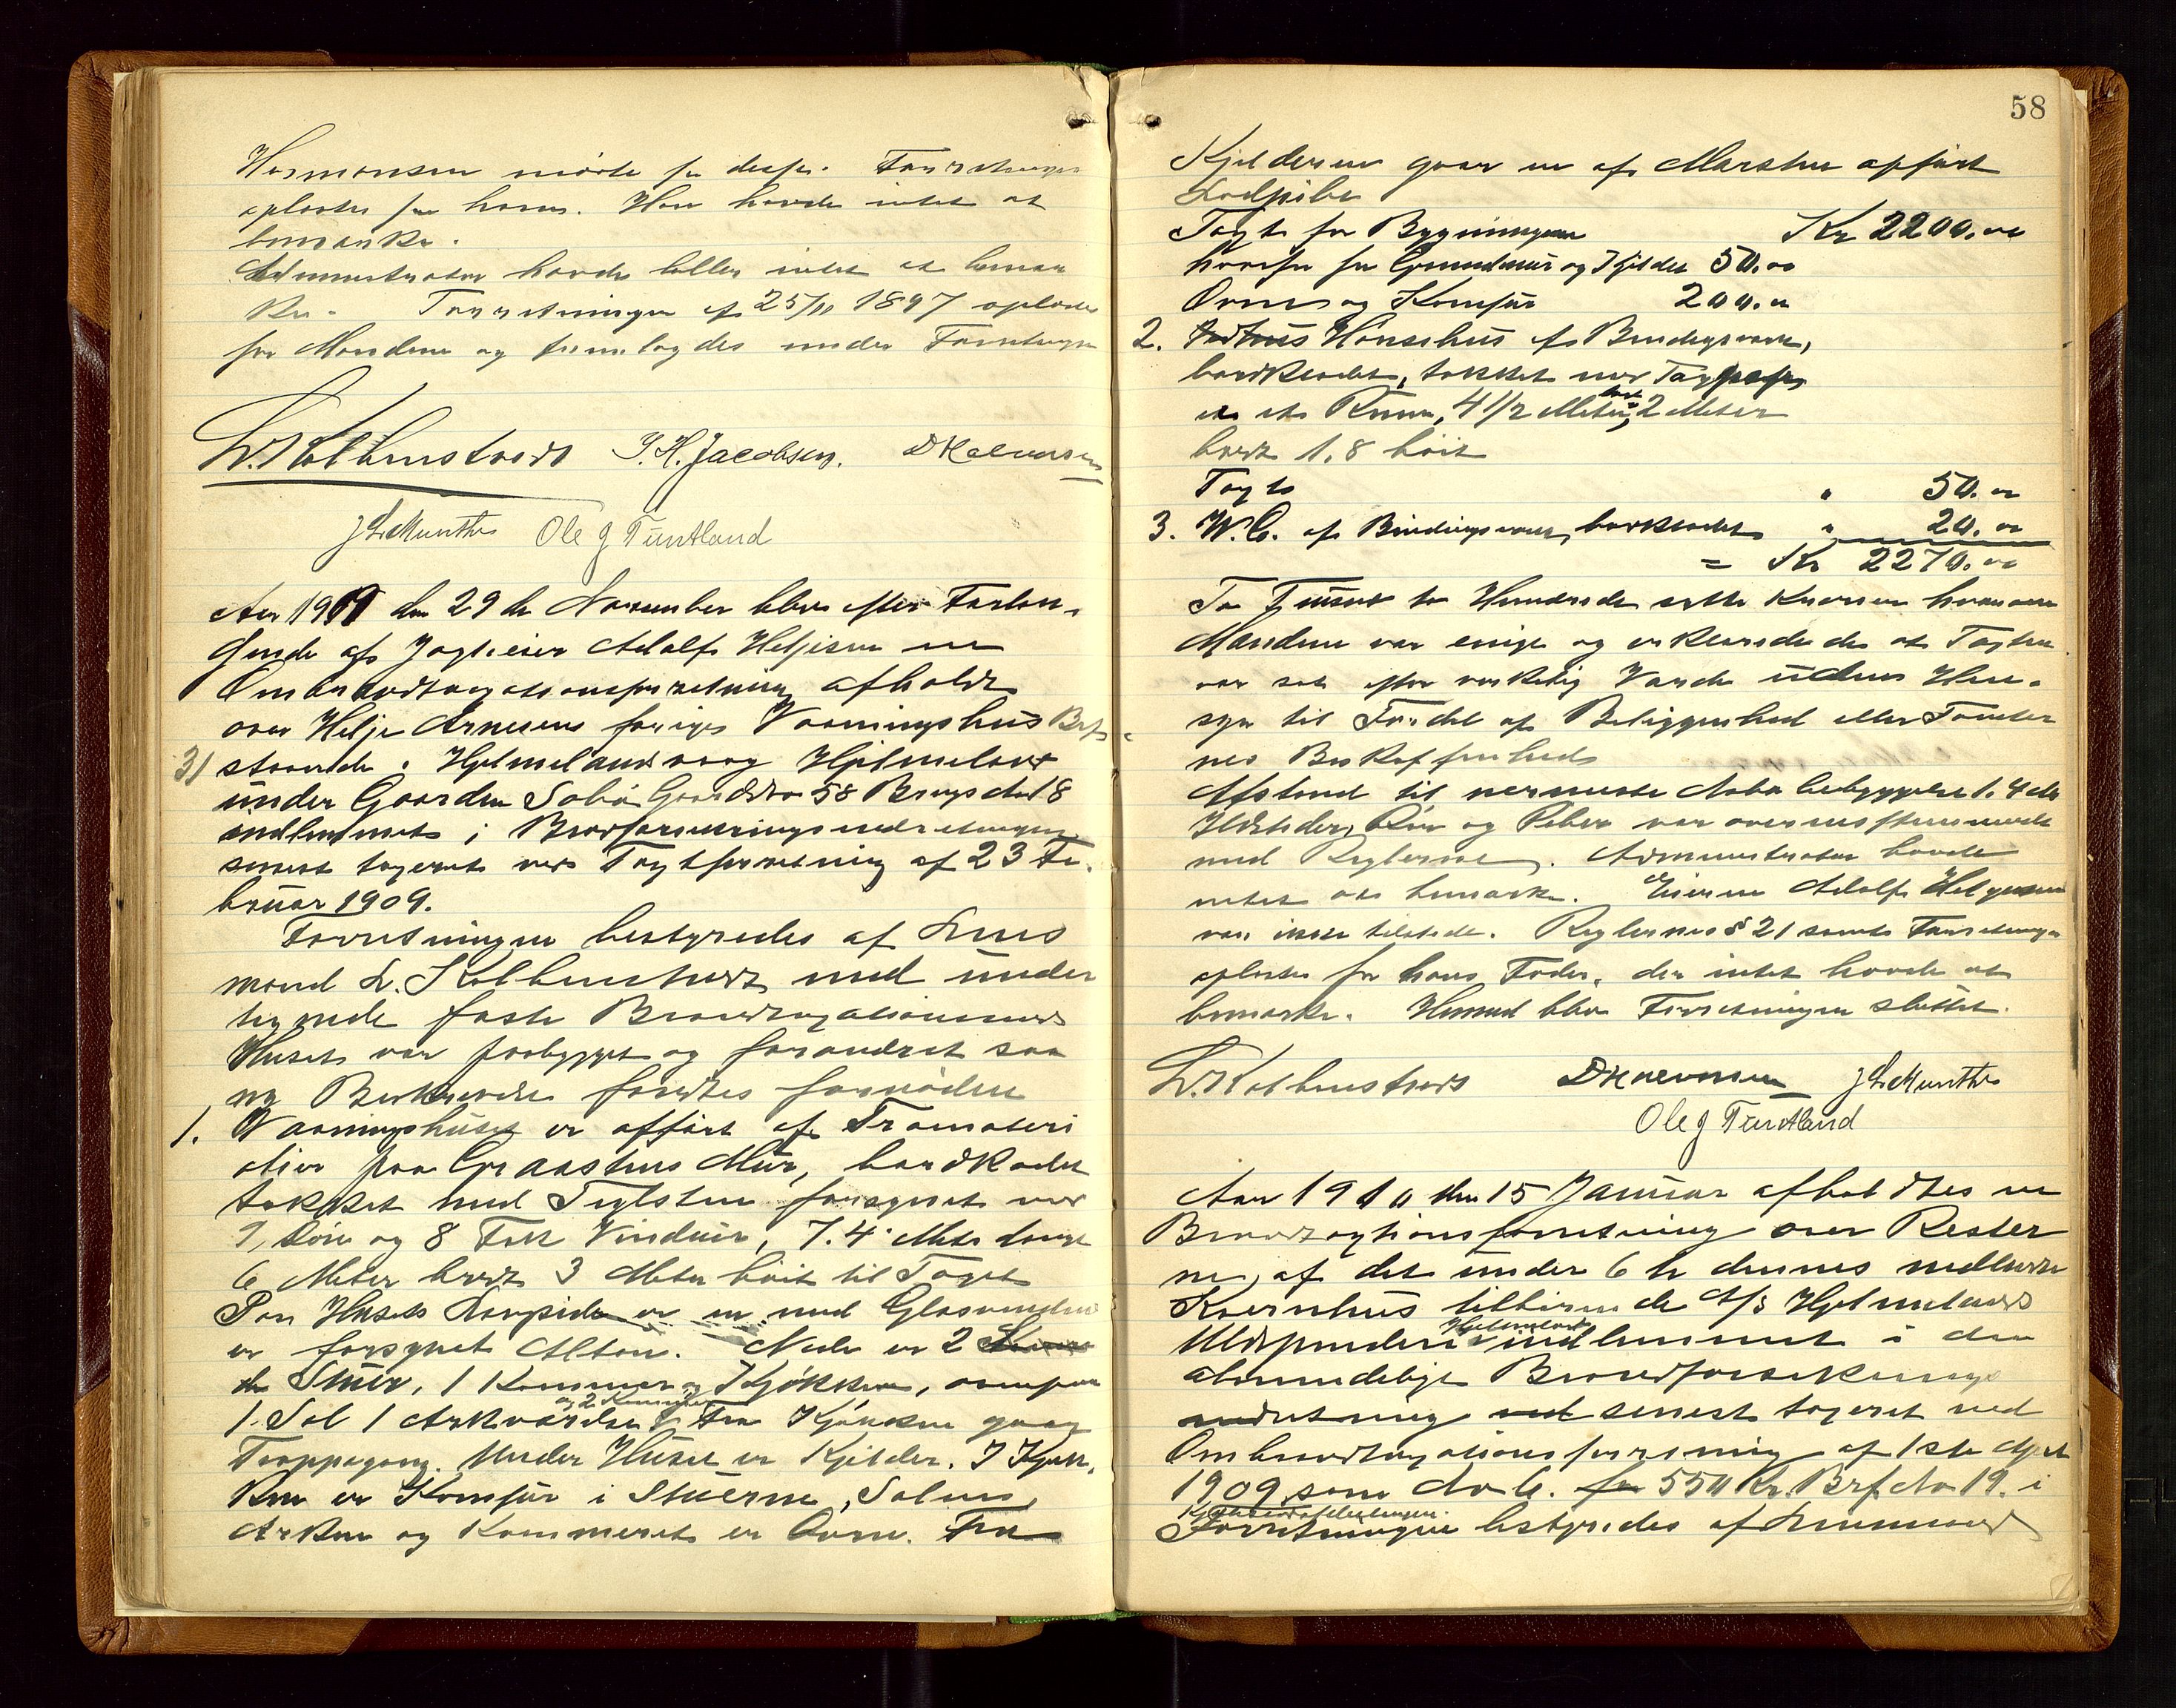 Hermansen mødte for desse. Forretningen
oplæstes for ham. Han havde intet at
bemærke.
Administrator havde heller intet at bemær
ke. Forretningen af 25/11 1897 oplæstes
for Mændene og fremlagdes under Forretningen
L. Kolbenstvedt J. H. Jacobsen. D Halvorsen
J L Munthe Ole J Tuntland
Aar 1909 den 29de November blev efter Forlan-
gende af Jagteier Adolf Helgesen en
Ombrandtagationsforretning afholdt
over Helje Arnesens forrige Vaaningshus Brf
31 staaende i Hjelmelandsvaag Hjelmeland
under Gaarden Sæbø Gaards No 58 Brugs No 18
indlemmet i Brandforsikringsindretningen
senest taxeret ved Taxtforretning af 23 Fe-
bruar 1909.
Forretningen bestyredes af Lens
mand L. Kolbenstvedt med under
tegnede faste Brandtagationsmænd
Huset var paabygget og forandret saa
ny Beskrivelse fandtes fornøden
1. Vaaningshuset er opført af Træmateri
alier paa Graastens Mur, bordklædt
tækket med Teglsten forsynet med
1 Dør og 8 Fag Vinduer, 7.4 Meter lange
6 Meter bredt 3 Meter høit til Taget
Paa Husets Langside er en med Glasvinduer
er forsynet Altan. Nede er 2
Stuer, 1 Kammer og Kjøkken, ovenpaa
og 2 Kammer
1 Sal 1 Arkværelse Fra Kjøkken gaar
Trappegang. Under Huset er Kjelder. I Kjøk-
ken er Komfur i Stuerne, Salen,
Arken og Kammeret er Ovne. Fra
58
Kjelderen gaar en af Mursten opført
Lodpibe
Taxt for Bygningen Kr 2200.00
hvoraf for Grundmur og Kjelder 50.00
Ovne og Komfur 200.00
2. Hønsehus af Bindingsværk,
bordklædt, tækket med Tagpap,
et Rum, 4 1/2 Meter langt, 2 Meter
bredt 1.8 høit
Taxt " 50.00
3. W.C. af Bindingsværk, bordklædt " 20.00
= Kr 2270.00
To Tusend to Hundrede sytti Kroner hvorom
Mændene var enige og erklærede de at Taxten
var sat efter virkelig Værdi uden Hen-
syn til Fordel af Beliggenhed eller Tomter
nes Beskaffenhed
Afstand til nermeste Nabo bebyggelse 1.4 Mtr
Ildsteder, Rør og Piber var overensstemmende
med Reglerne. Administrator havde
intet at bemærke. Eieren Adolf Helgesen
var ikke tilstede. Reglernes § 21 samt Forretningen
oplæstes for hans Fader, der intet havde at
bemærke. Hermed blev Forretningen sluttet.
L. Kolbenstvedt D Halvorsen J L Munthe
Ole J Tuntland
Aar 1910 den 15 Januar afholdtes en
Brandtagtionsforretning over Rester
ne, af det under 6te dennes nedbrændte
Kværnhus tilhørende A/S Hjelmelands
Hjelmeland
Uldspinderi indlemmet i den
almindelige Brandforsikrings
indretning senest taxeret ved
Ombrandtagationsforretning af 1ste April
1909 som No 6. for 550 Kr. Brf. No 19. i
Forretningen bestyredes af Lensmand